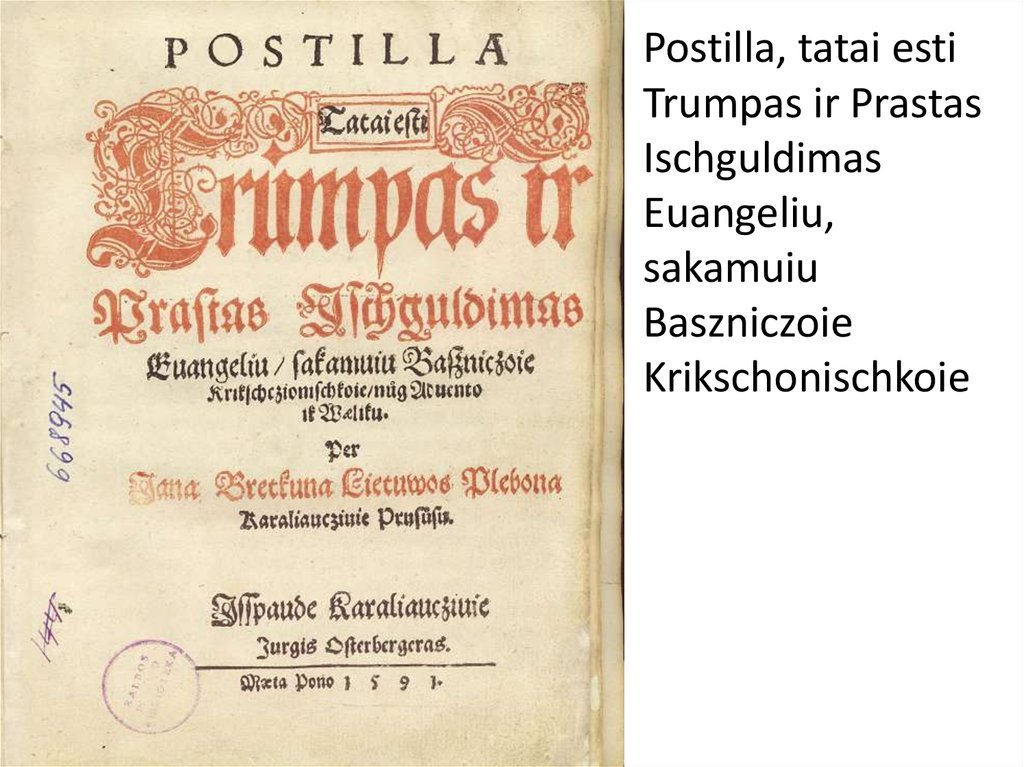 POSTILLA
Tatai esti
Trumpas ir
Prastas Ischguldimas
Euangeliu / sakamuiu Baszniczoie
Krikschczionischkoie / nůg Aduento
ik Wæliku.
Per
Jana Bretkuna Lietuwos Plebona
Karaliaucziuie Prusůsu.
Isspaude Karaliaucziuie
Jurgis Osterbergeras.
Mæta Pono 1 5 9 1.
668945
KALBOS
Postilla, tatai esti
Trumpas ir Prastas
Ischguldimas
Euangeliu,
sakamuiu
Baszniczoie
Krikschonischkoie